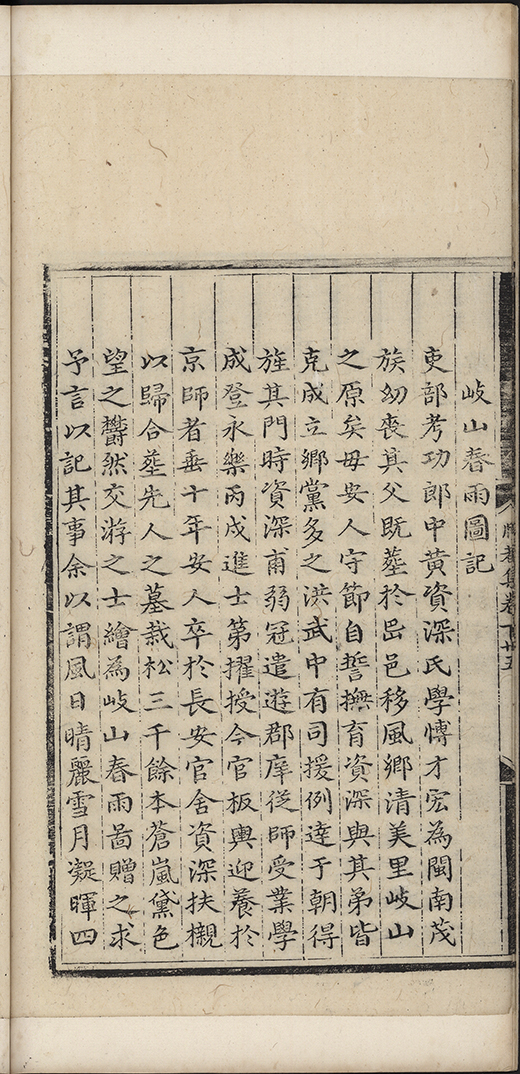 岐山春雨圖記
吏部考功郎中黃資深氏學博才宏為閩南茂
族幼喪其父既塟於邑邑移風鄉清美里岐山
之原矣毋安人守節自誓撫育資深與其弟皆
克成立鄉黨多之洪武中有司援例達于朝得
旌其門時資深甫弱冠遣遊郡庠從師受業學
成登永樂丙戌進士第擢授今官板輿迎養於
京師者垂十年安人卒於長安官舍資深扶櫬
以歸合塟先人之墓栽松三千餘本蒼嵐黛色
望之欝然交游之士繪為岐山春雨啚贈之求
予言以記其事余以謂風日晴麗雪月凝暉四
集卷下廿五